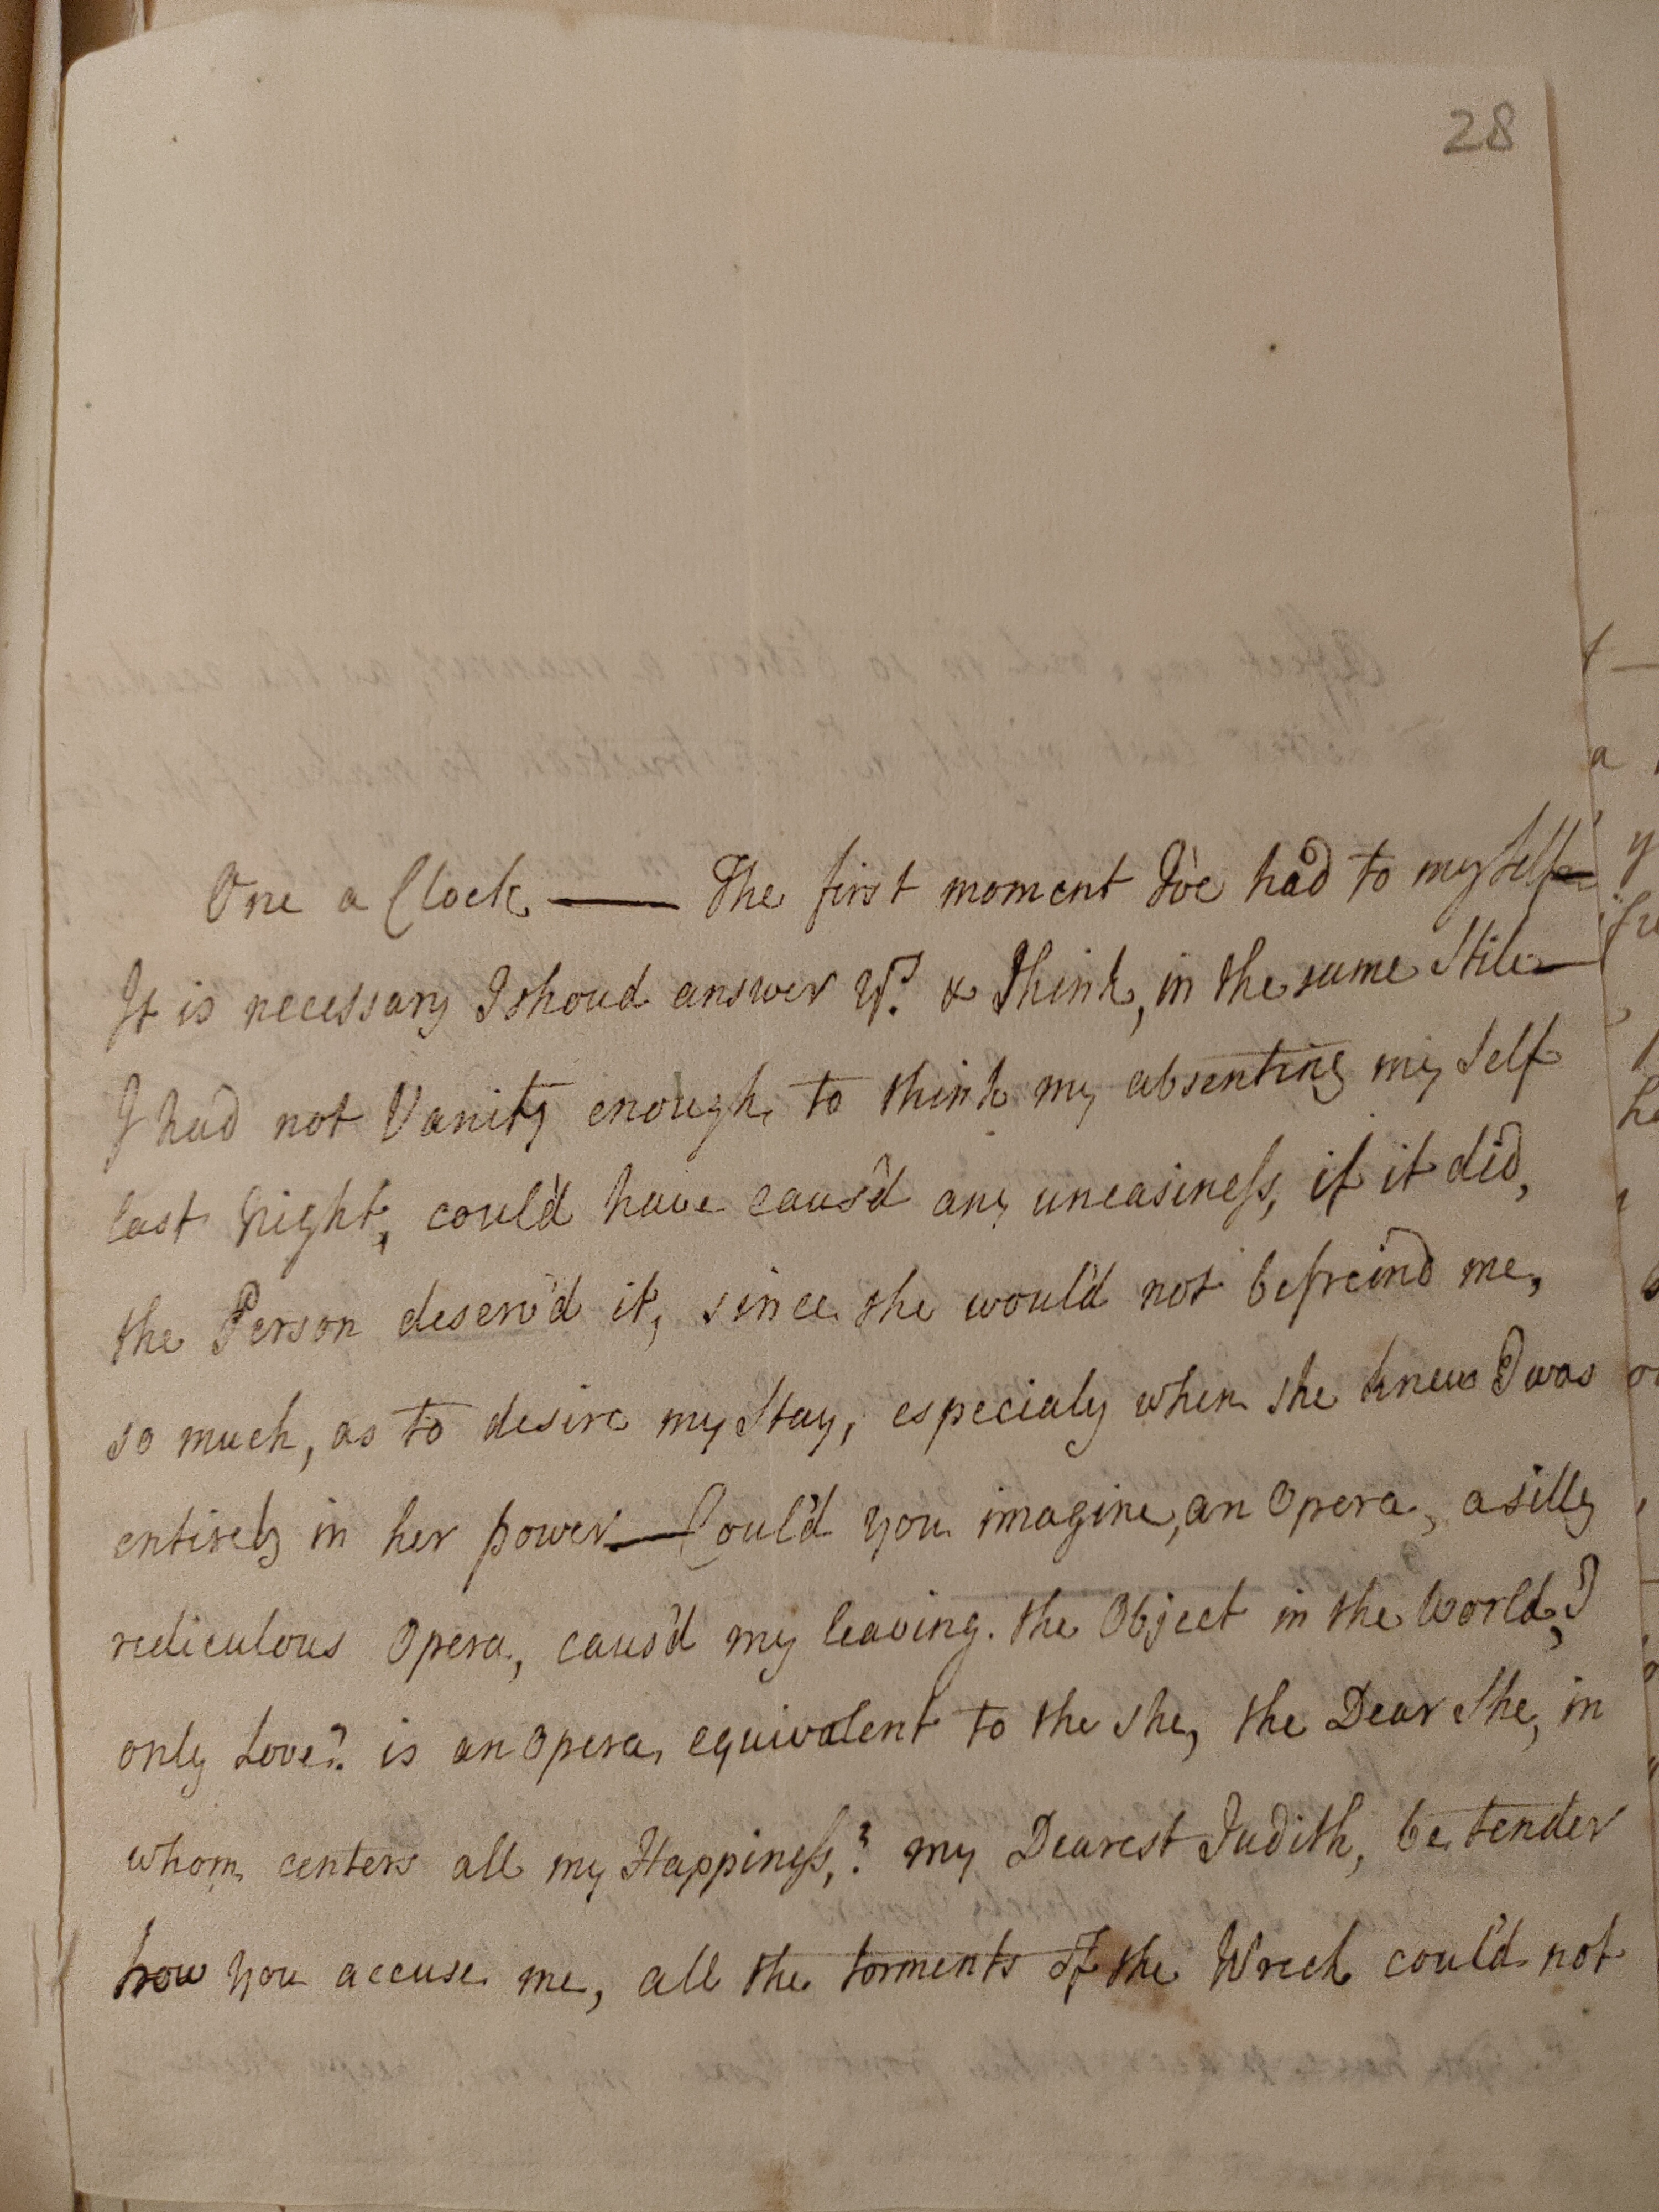 28
One a Clock —— The first moment I've had to my self—
It is necessary I shoud answer yrs. & think, in the same Stile—
I had not Vanity enough, to think my absenting my self
last Night, could have caus'd any uneasiness, if it did,
the Person deserv'd it, since she would not befreind me,
so much, as to desire my Stay, especialy when she knew I was
entirely in her power — Could you imagine, an Opera, a silly
rediculous Opera, caus'd my leaving the Object in the World, I
only Love? is an Opera, equivalent to the she, the Dear She, in
whom centers all my Happiness,? my Dearest Judith, be tender
how you accuse me, all the torments of the Wreck could not